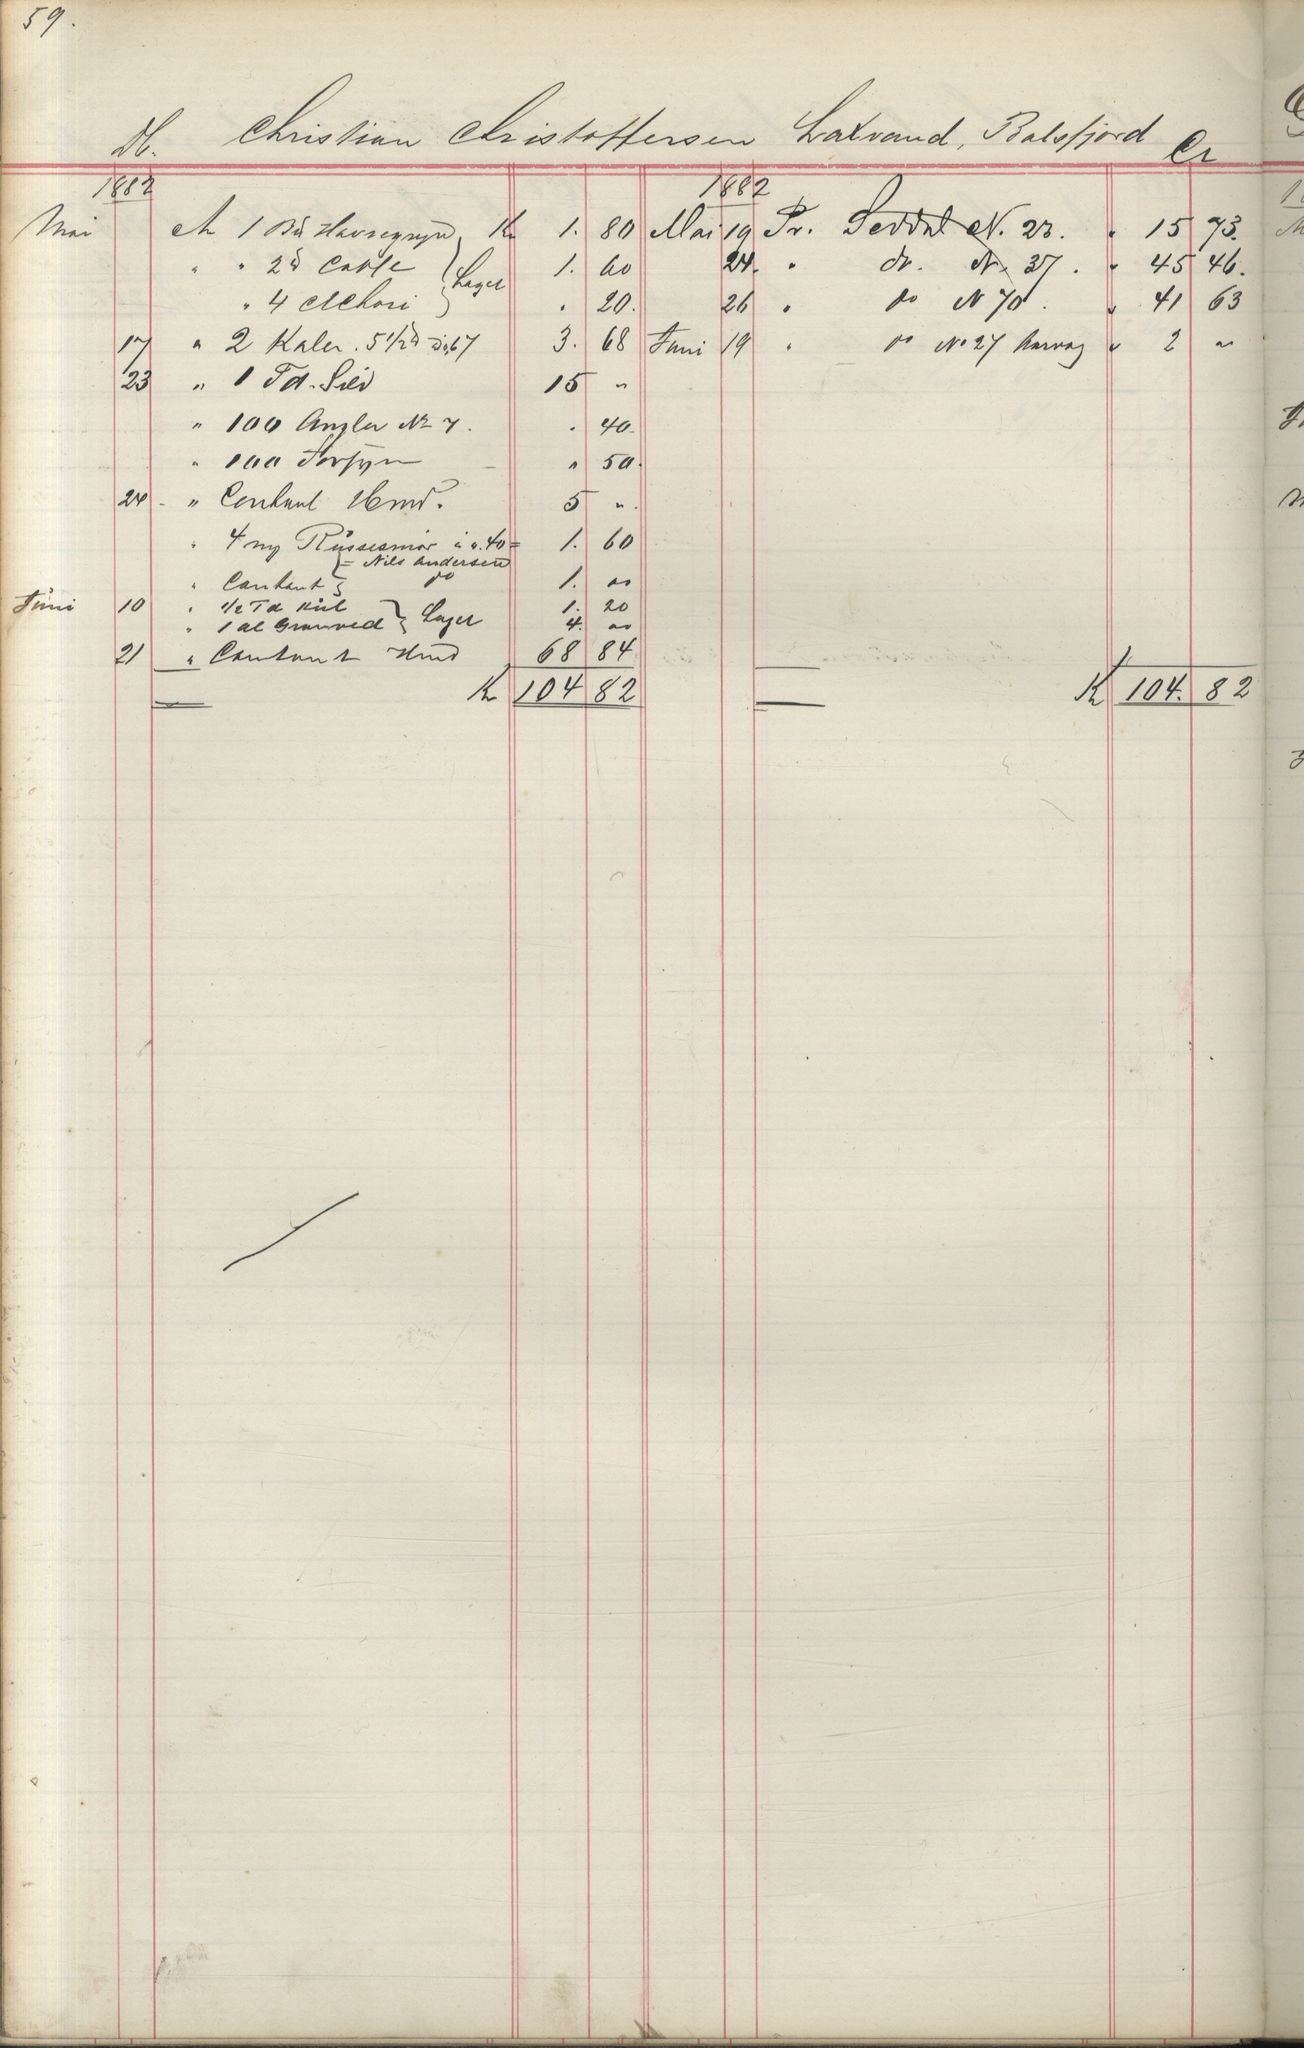 59.
Dt. Christian Christoffersen Laxvand, Balsfjord Cr
1882 1882
Mai At 1 Bu Havregryn K 1. 80 Mai 19 Pr. Seddel N. 23. " 15 73.
" " 2 d Caffe Lager 1. 60 24. " do. N. 37. " 45 46.
" 4 Lager " 20. 26 " do N 70. " 41 63
17 " 2 Kaler. 5 1/2 d 67 3. 68 Juni 19 " do No 27 " 2 "
23 " 1 Td. Sild 15 "
" 100 Angler No 7. " 40.
" 100 Forsyn " 50.
24 " Contant Hmd. 5 "
" 4 mg Russesmør a ". 40 = 1. 60
= Nils Andersen
" Contant do 1. "
Juni 10 " 1/2 Td Kul 1. 20
" 1 al Granved Lager 4. "
21 " Contant Hmd 68 84
K 104 82 K 104. 82